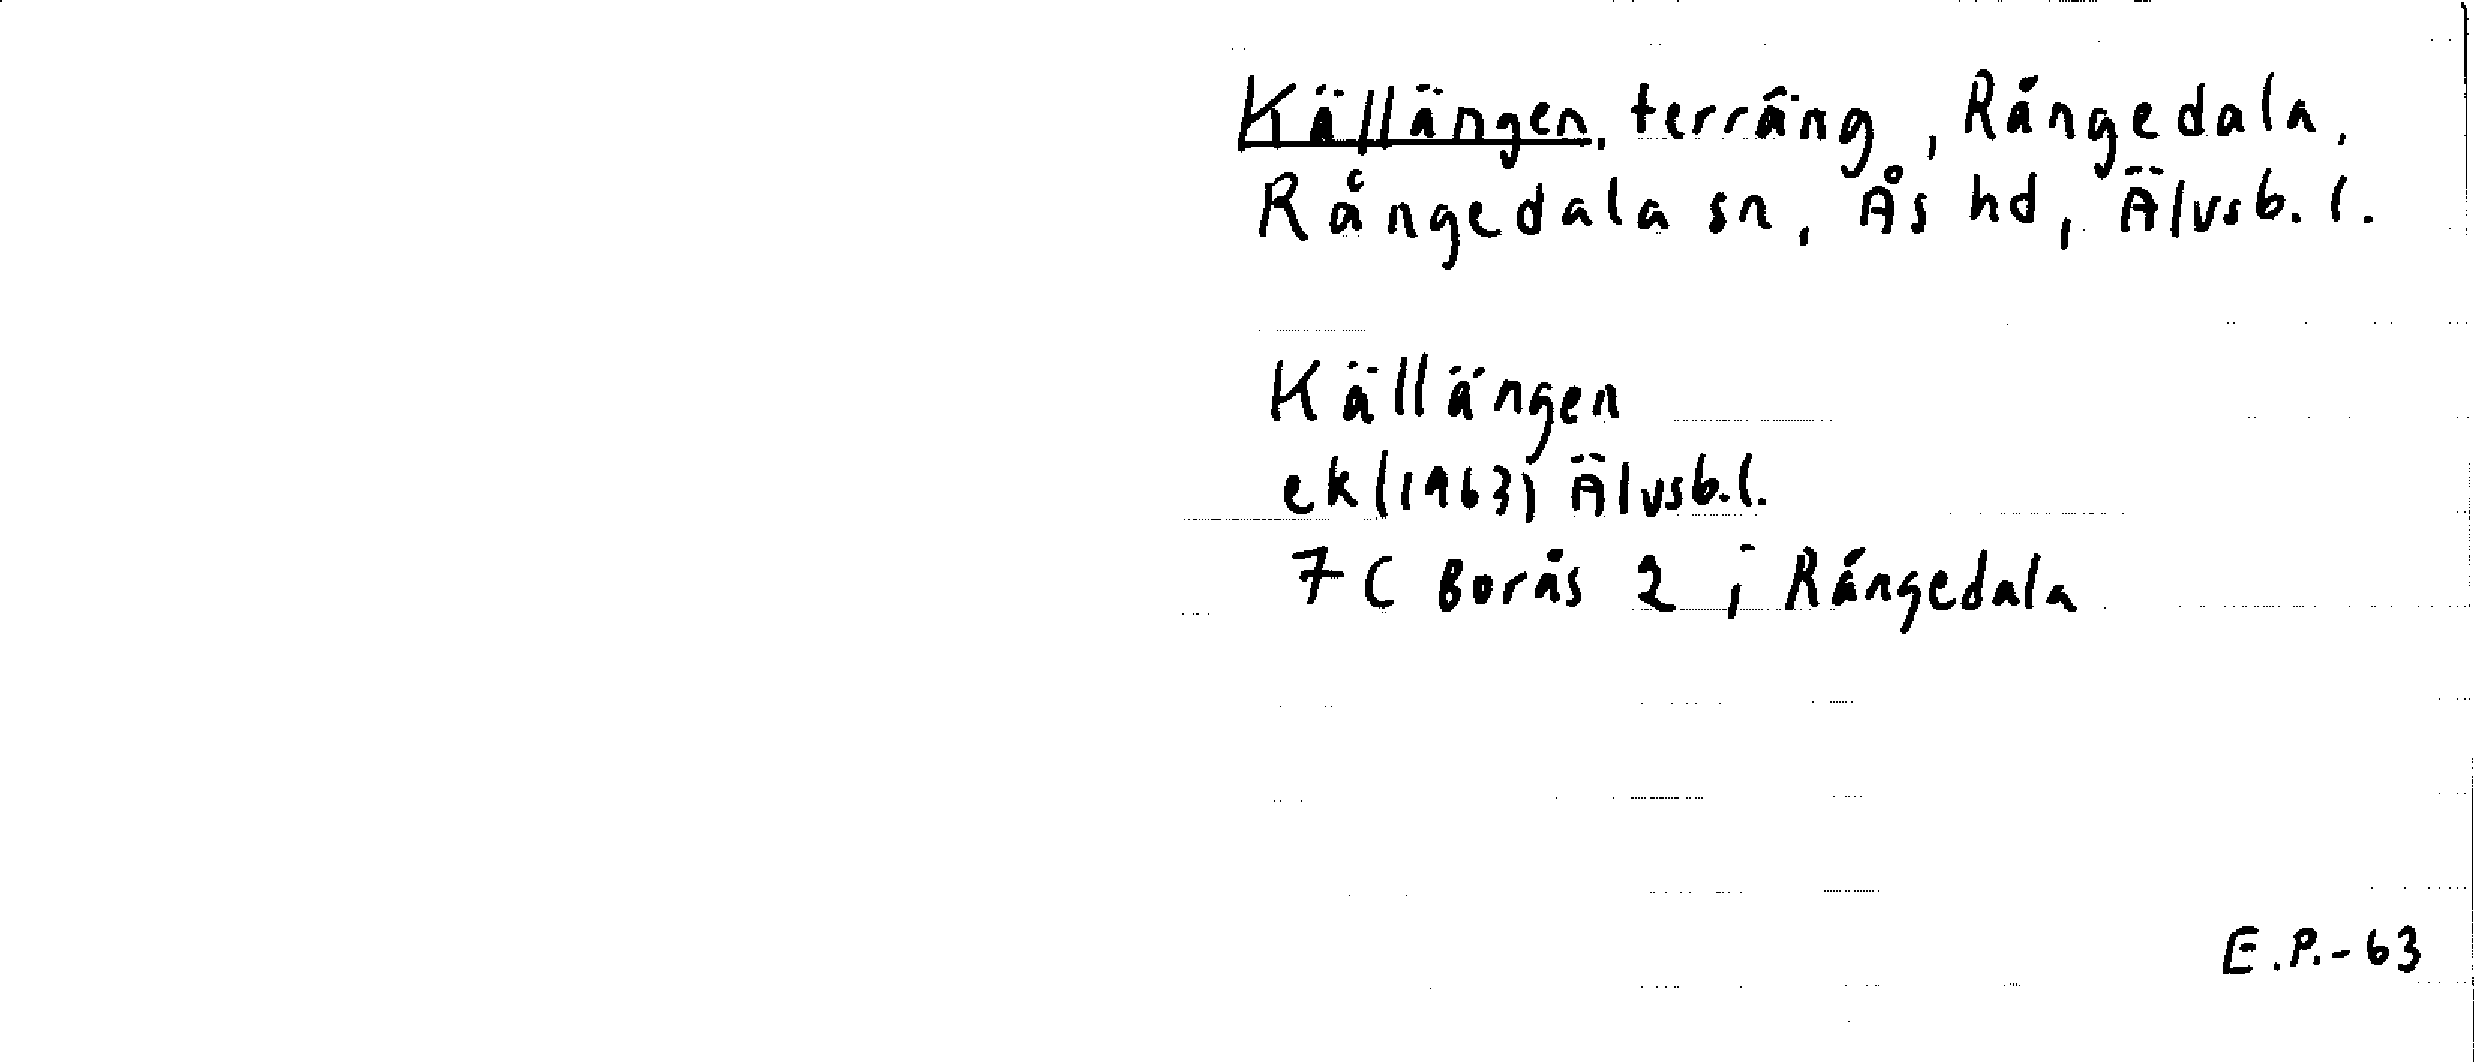 Källängen, terräng, Rångedala,
Rångedala sn, Ås hd, Älvsb. l.
Källängen
ek (1963) Älvsb. l.
7 C Borås 2 j Rångedala
E.P.-63